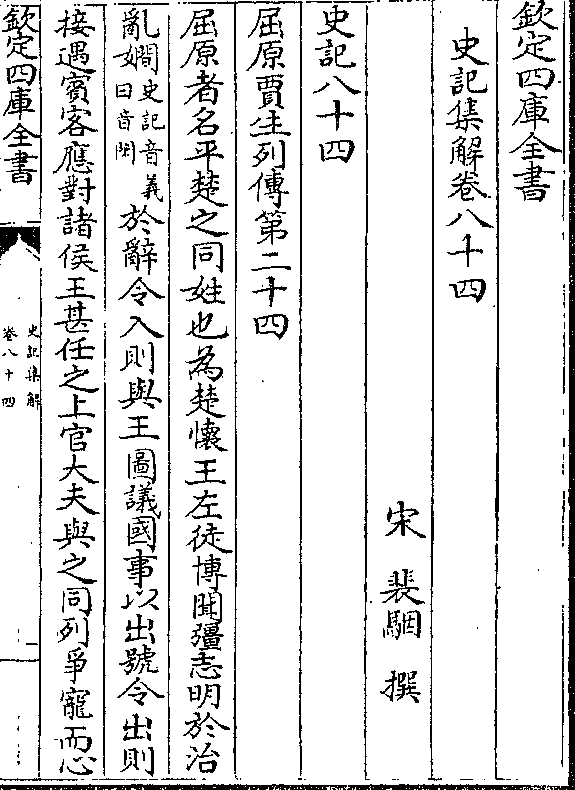 欽定四庫全書
史記集解卷八十四
宋 裴駰 撰
史記八十四
屈原賈生列傳第二十四
屈原者名平楚之同姓也為楚懷王左徒博聞彊志明於治
亂嫺史記音義曰音閑於辭令入則與王圖議國事以出號令出則
接遇賓客應對諸侯王甚任之上官大夫與之同列爭寵而心
欽定四庫全書
史記集解
卷八十四
一